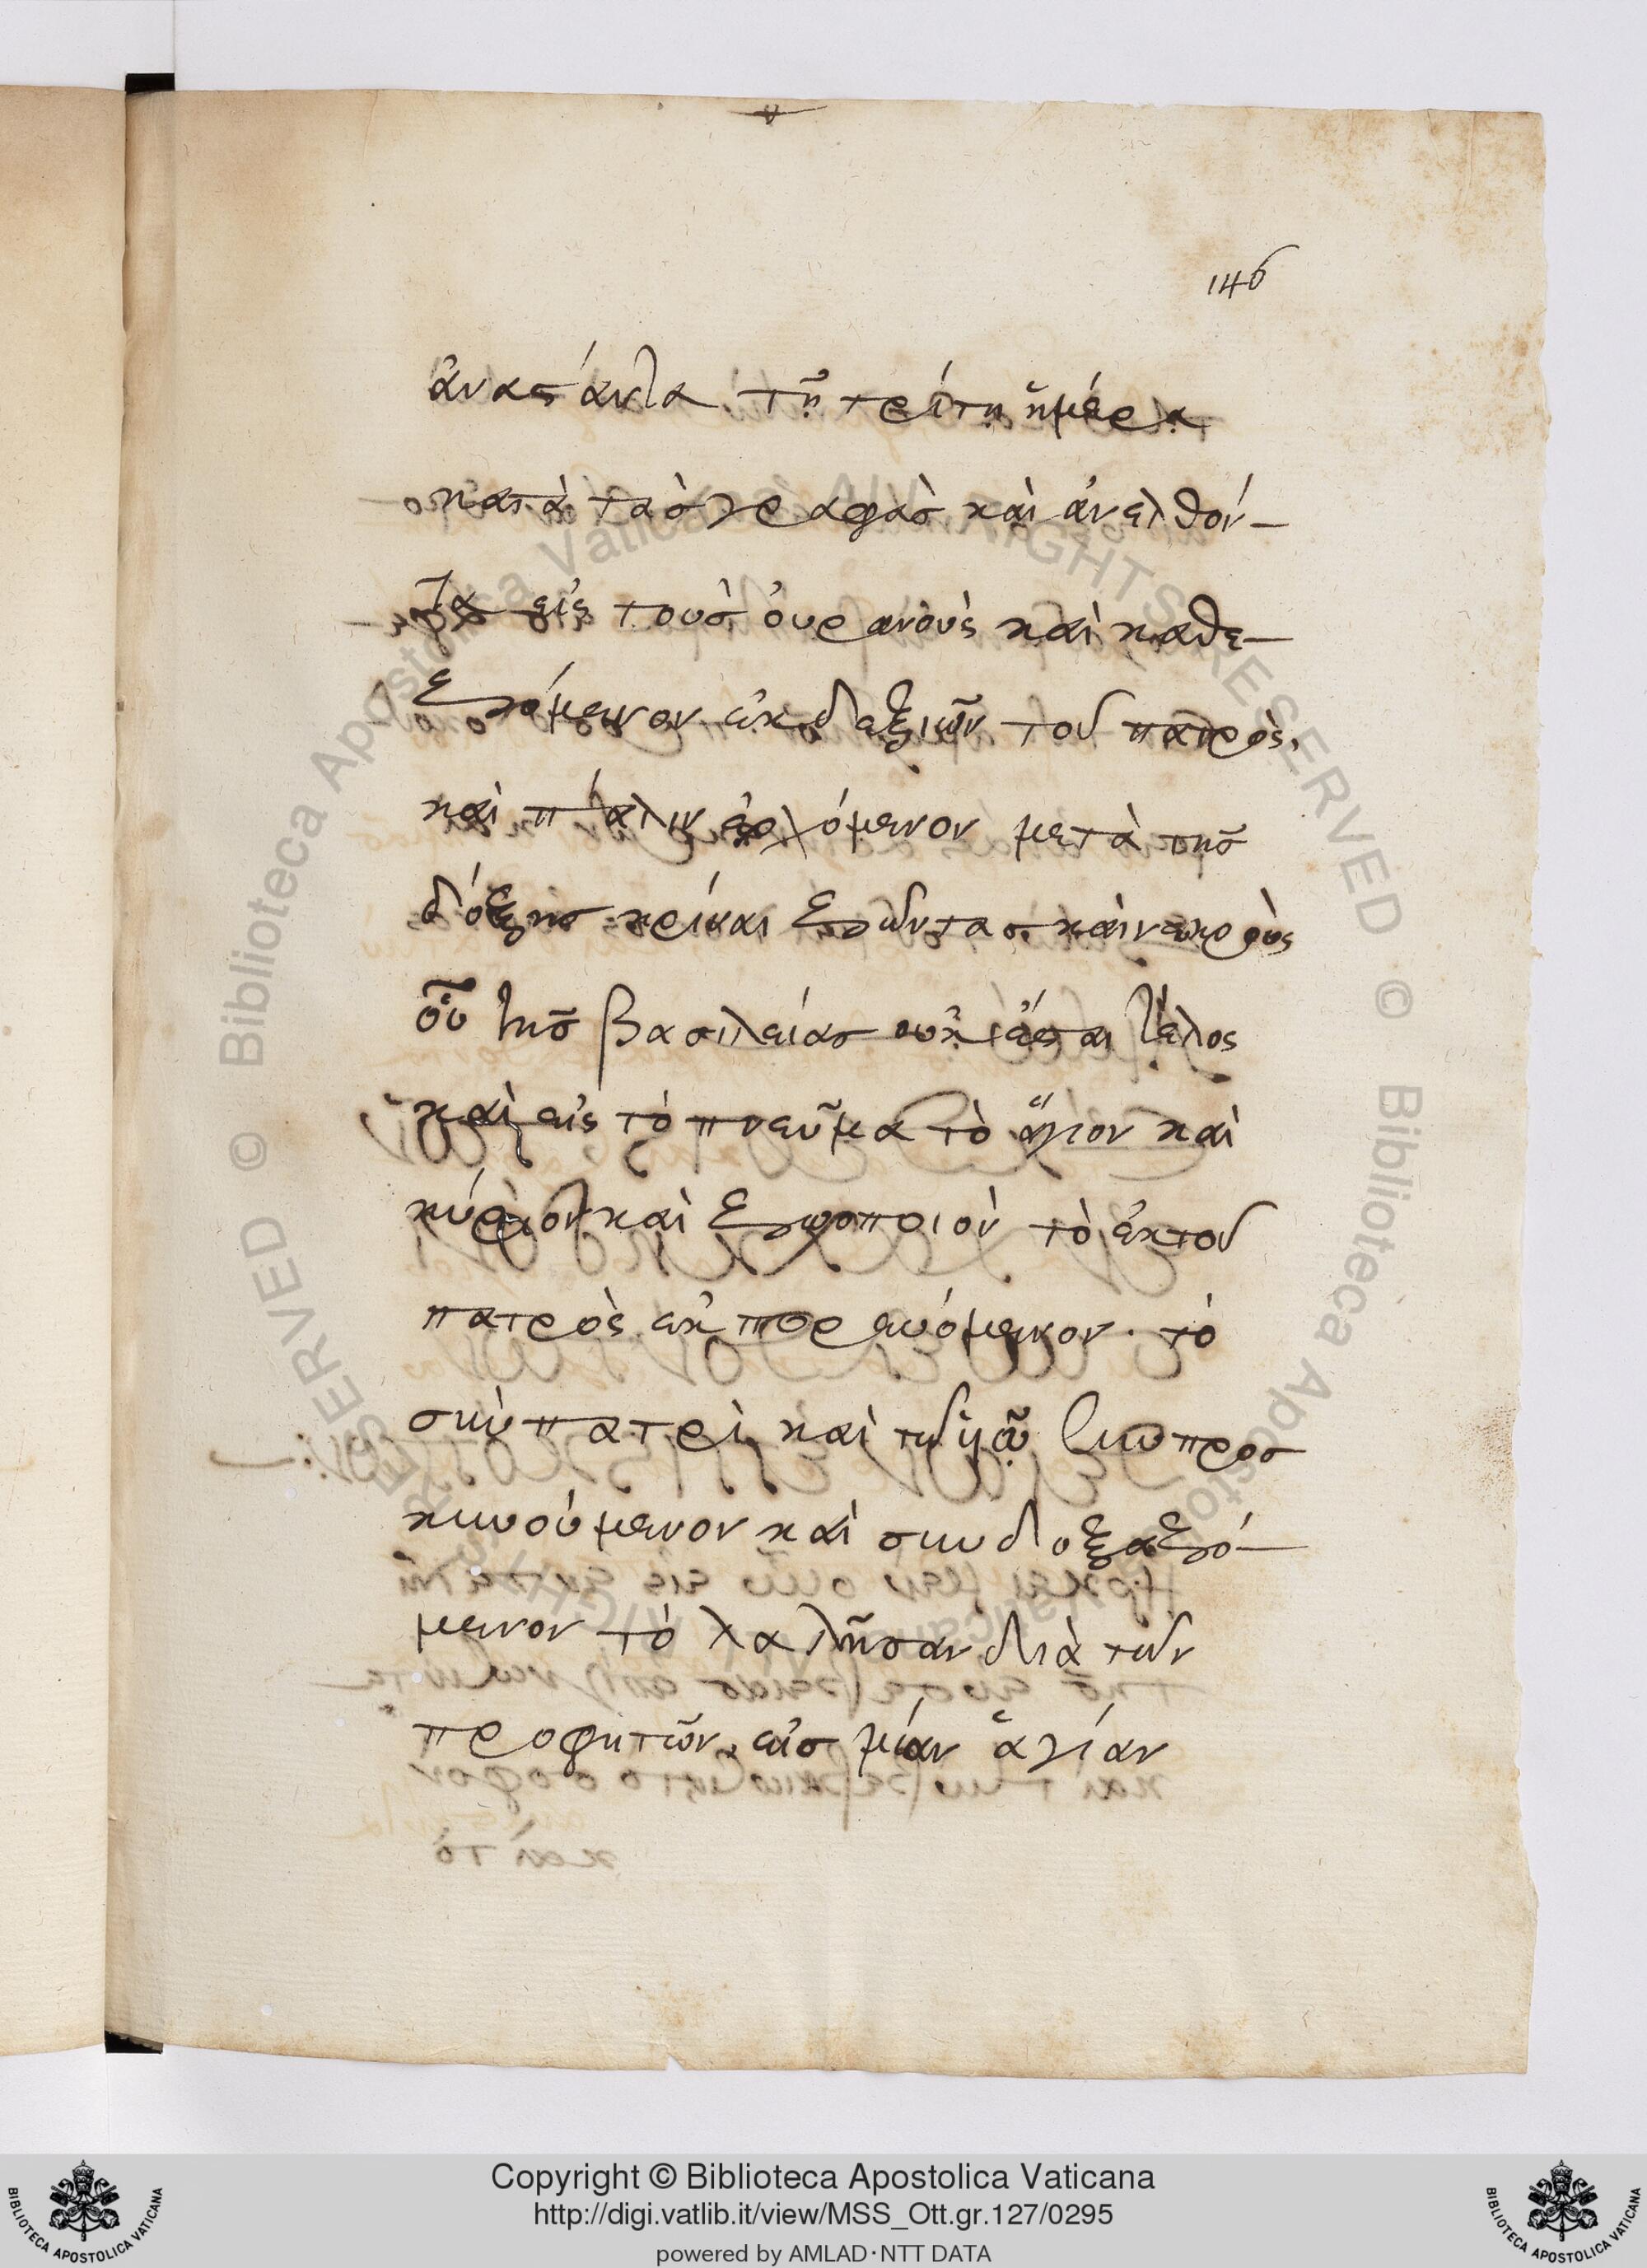 146
ἀναστάντα τῇ τρίτῃ ἡμέρᾳ
κατὰ τὰσ γραφὰσ καὶ ἀνελθόν-
τα εἰς τοὺσ οὐρανοὺς καὶ καθε-
ζόμενον ἐκ δεξιῶν τοῦ πατρὸς.
καὶ πάλιν ἐρχόμενον μετὰ τῆσ
δόξησ κρίναι ζῶντασ καὶ νεκροὺς
οὗ τῆσ βασιλείασ οὐκ ἔσται τέλος
καὶ εἰς τὸ πνεῦμα τὸ ἅγιον καὶ
κύριον καὶ ζωοποιὸν τὸ ἐκ τοῦ
πατρὸς ἐκπορευόμενον. τὸ
σὺν πατρὶ καὶ τῷ ὑῷ συμπροσ
κυνούμενον καὶ συνδοξαζό-
μενον τὸ λαλῆσαν διὰ τῶν
προφητῶν, εἰσ μίαν ἁγίαν
Copyright © Biblioteca Apostolica Vaticana
http://digi.vatlib.it/view/MSS_Ott.gr.127/0295
powered by AMLAD·NTT DATA
BIBLIOTECA APOSTOLICA VATICANA
BIBLIOTECA APOSTOLICA VATICANA